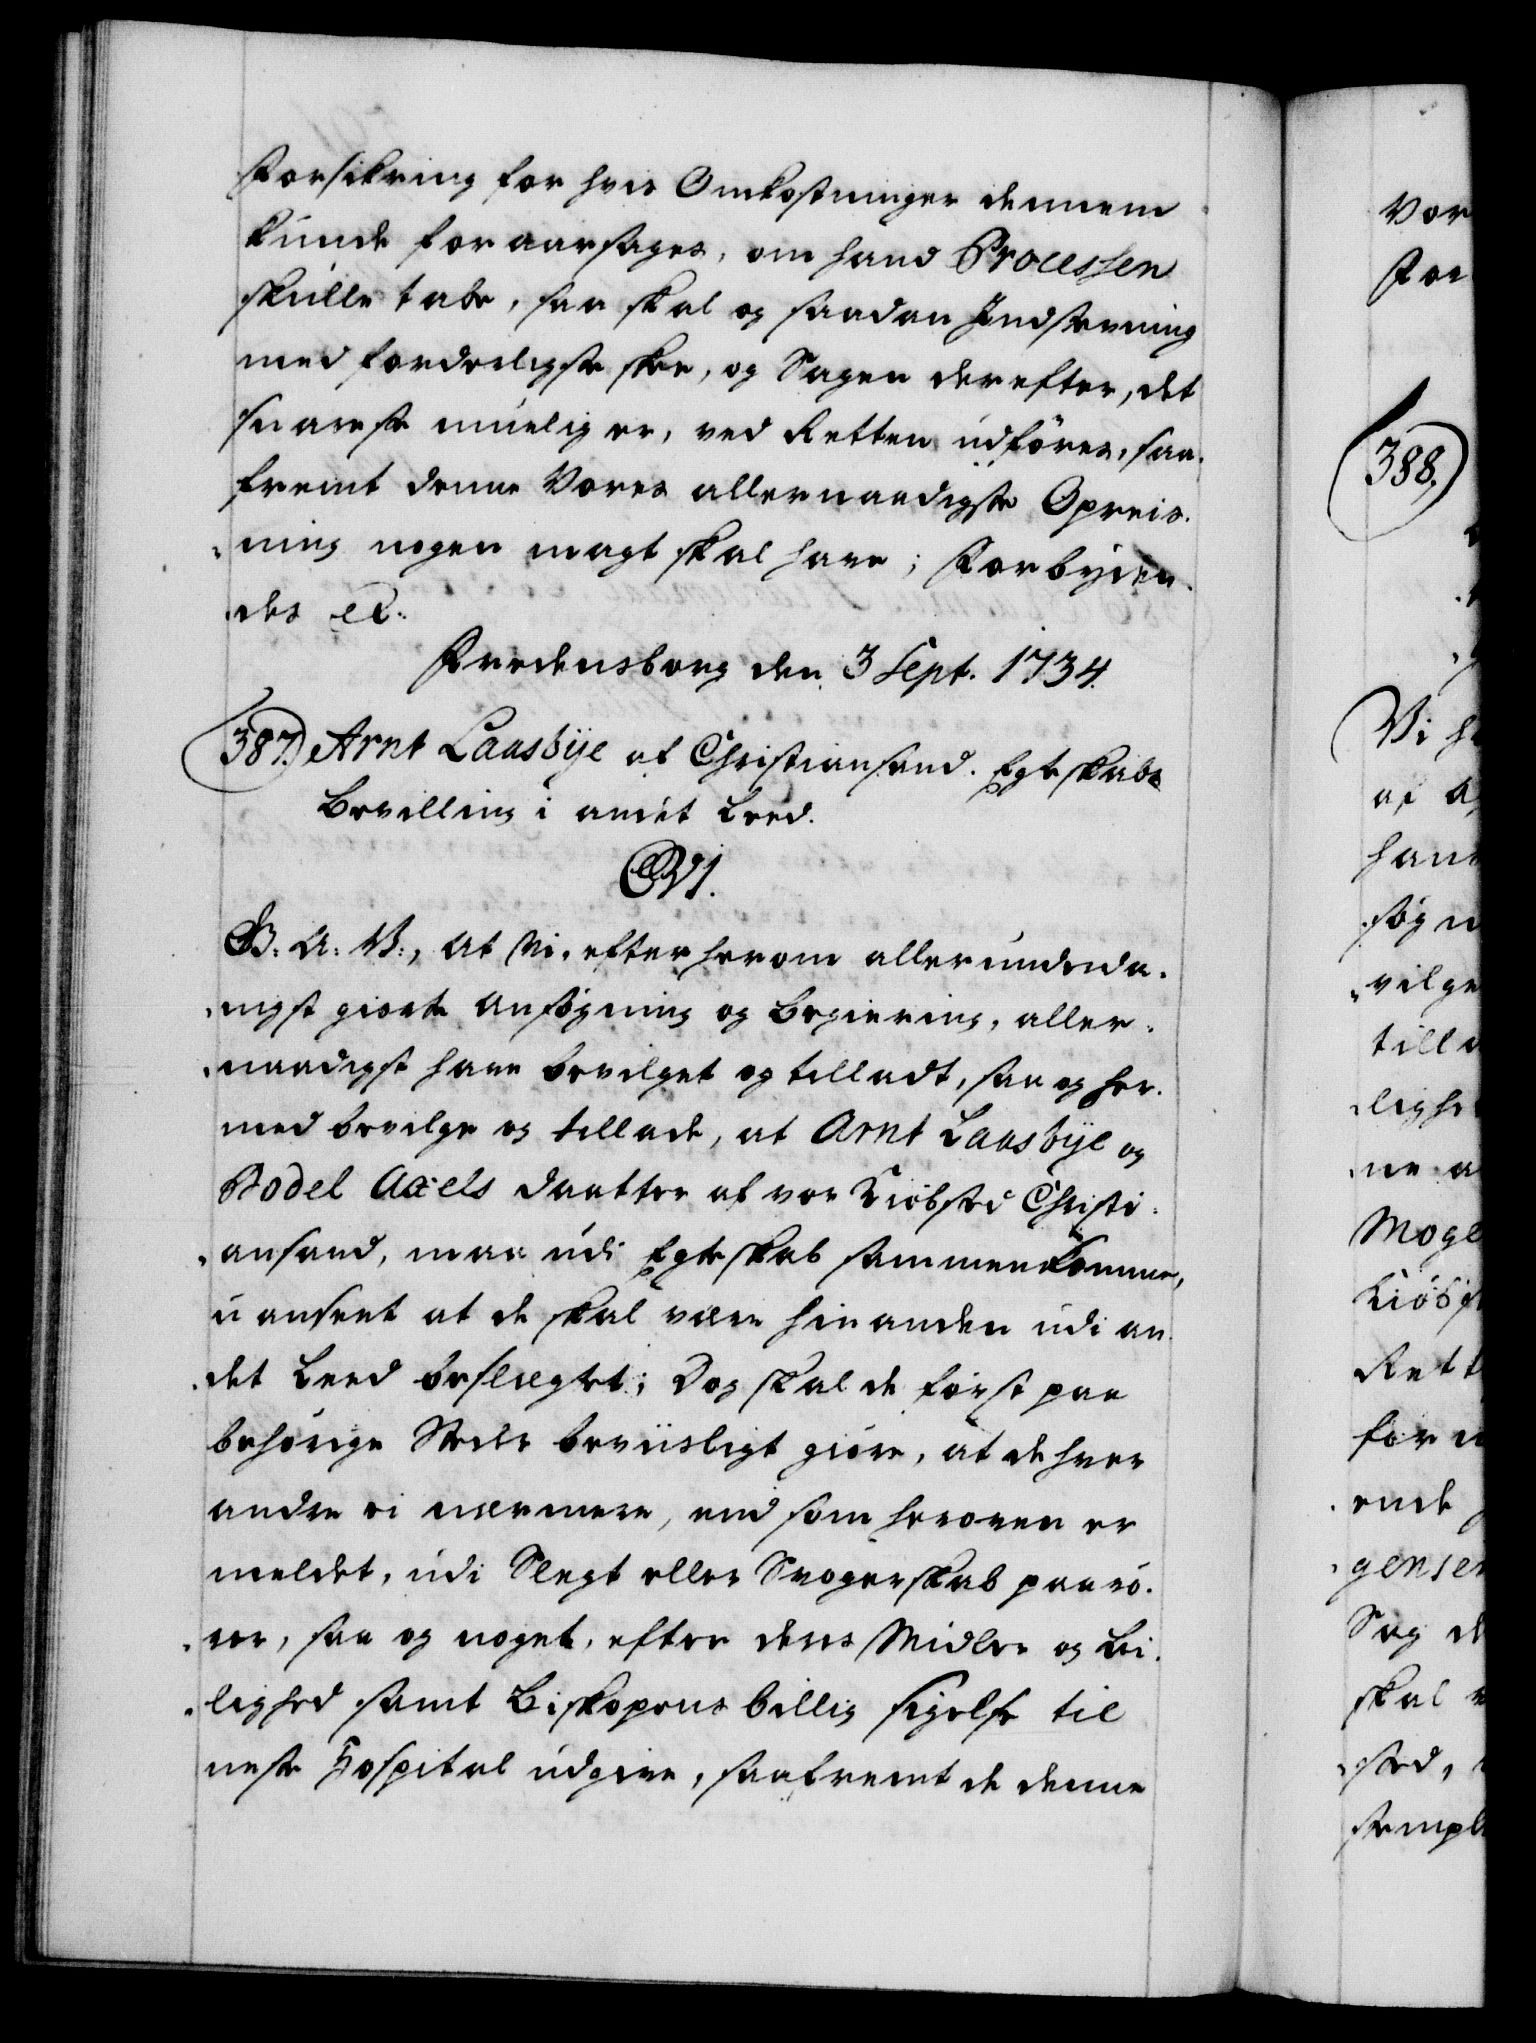 Forsikring for hvis Omkostninger dennem
kunde foraarsages, om hand Processen
skulle tabe, saa skal og saadan Indstevning
med forderligste skee, og Sagen derefter, det
snareste mueligt er, ved Retten udføres, saa-
fremt denne Vores allernaadigste Opreis-
ning nogen magt skal have; Forbyden-
des etc.
Fredensborg den 3 Sept. 1734.
387. Arnt Laasbye af Christiansand. Egteskabs
Bevilling i andet Leed.
C VI.
G. A. V., At Vi, efter herom allerunderda-
nigst giorte Ansøgning og Begiering, aller-
naadigst have bevilget og tilladt, saa og her-
med bevilge og tillade, at Arnt Laasbye og
Bodel Axels daatter af vor Kiøbsted Christi-
ansand, maa udi Egteskab sammenkomme,
uanseet at de skal være hinanden udi an-
det Leed beslægtet; Dog skal de først paa
behørige Steder beviisligt giøre, at de hver
andre ei nærmere, end som heroven er
meldet, udi Slegt eller Svogerskab paarø-
rer, saa og noget, efter deres Midler og Lei-
lighed samt Biskopens billig sigelse til
neste Hospital udgive, saafremt de denne
Vor
For
388.
Vi h
af A
hans
søgn
vilge
tilla
lighe
ne a
Moge
Kiøbst
Rett
for
ende
gensen
Sag de
skal
sted,
stempl